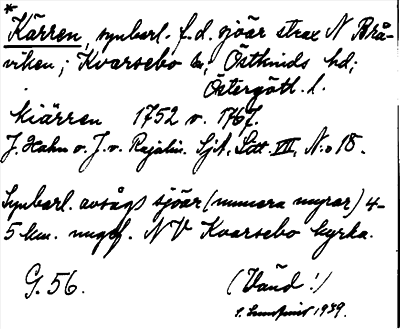 *
Kärren, synbarl. f.d. sjöar strax N Brå-
viken; Kvarsebo sn, Östkinds hd;
Östergötl. l.
Kiärren 1752 v. 1767.
J. Hahn o. J. v. Rajalin. Sjk. Litt. VII, N:o 18.
Synbarl. avsågs sjöar (numera myrar) 4-
5 km. ungef. NV Kvarsebo kyrka.
G. 56. (Vänd!)
1939.